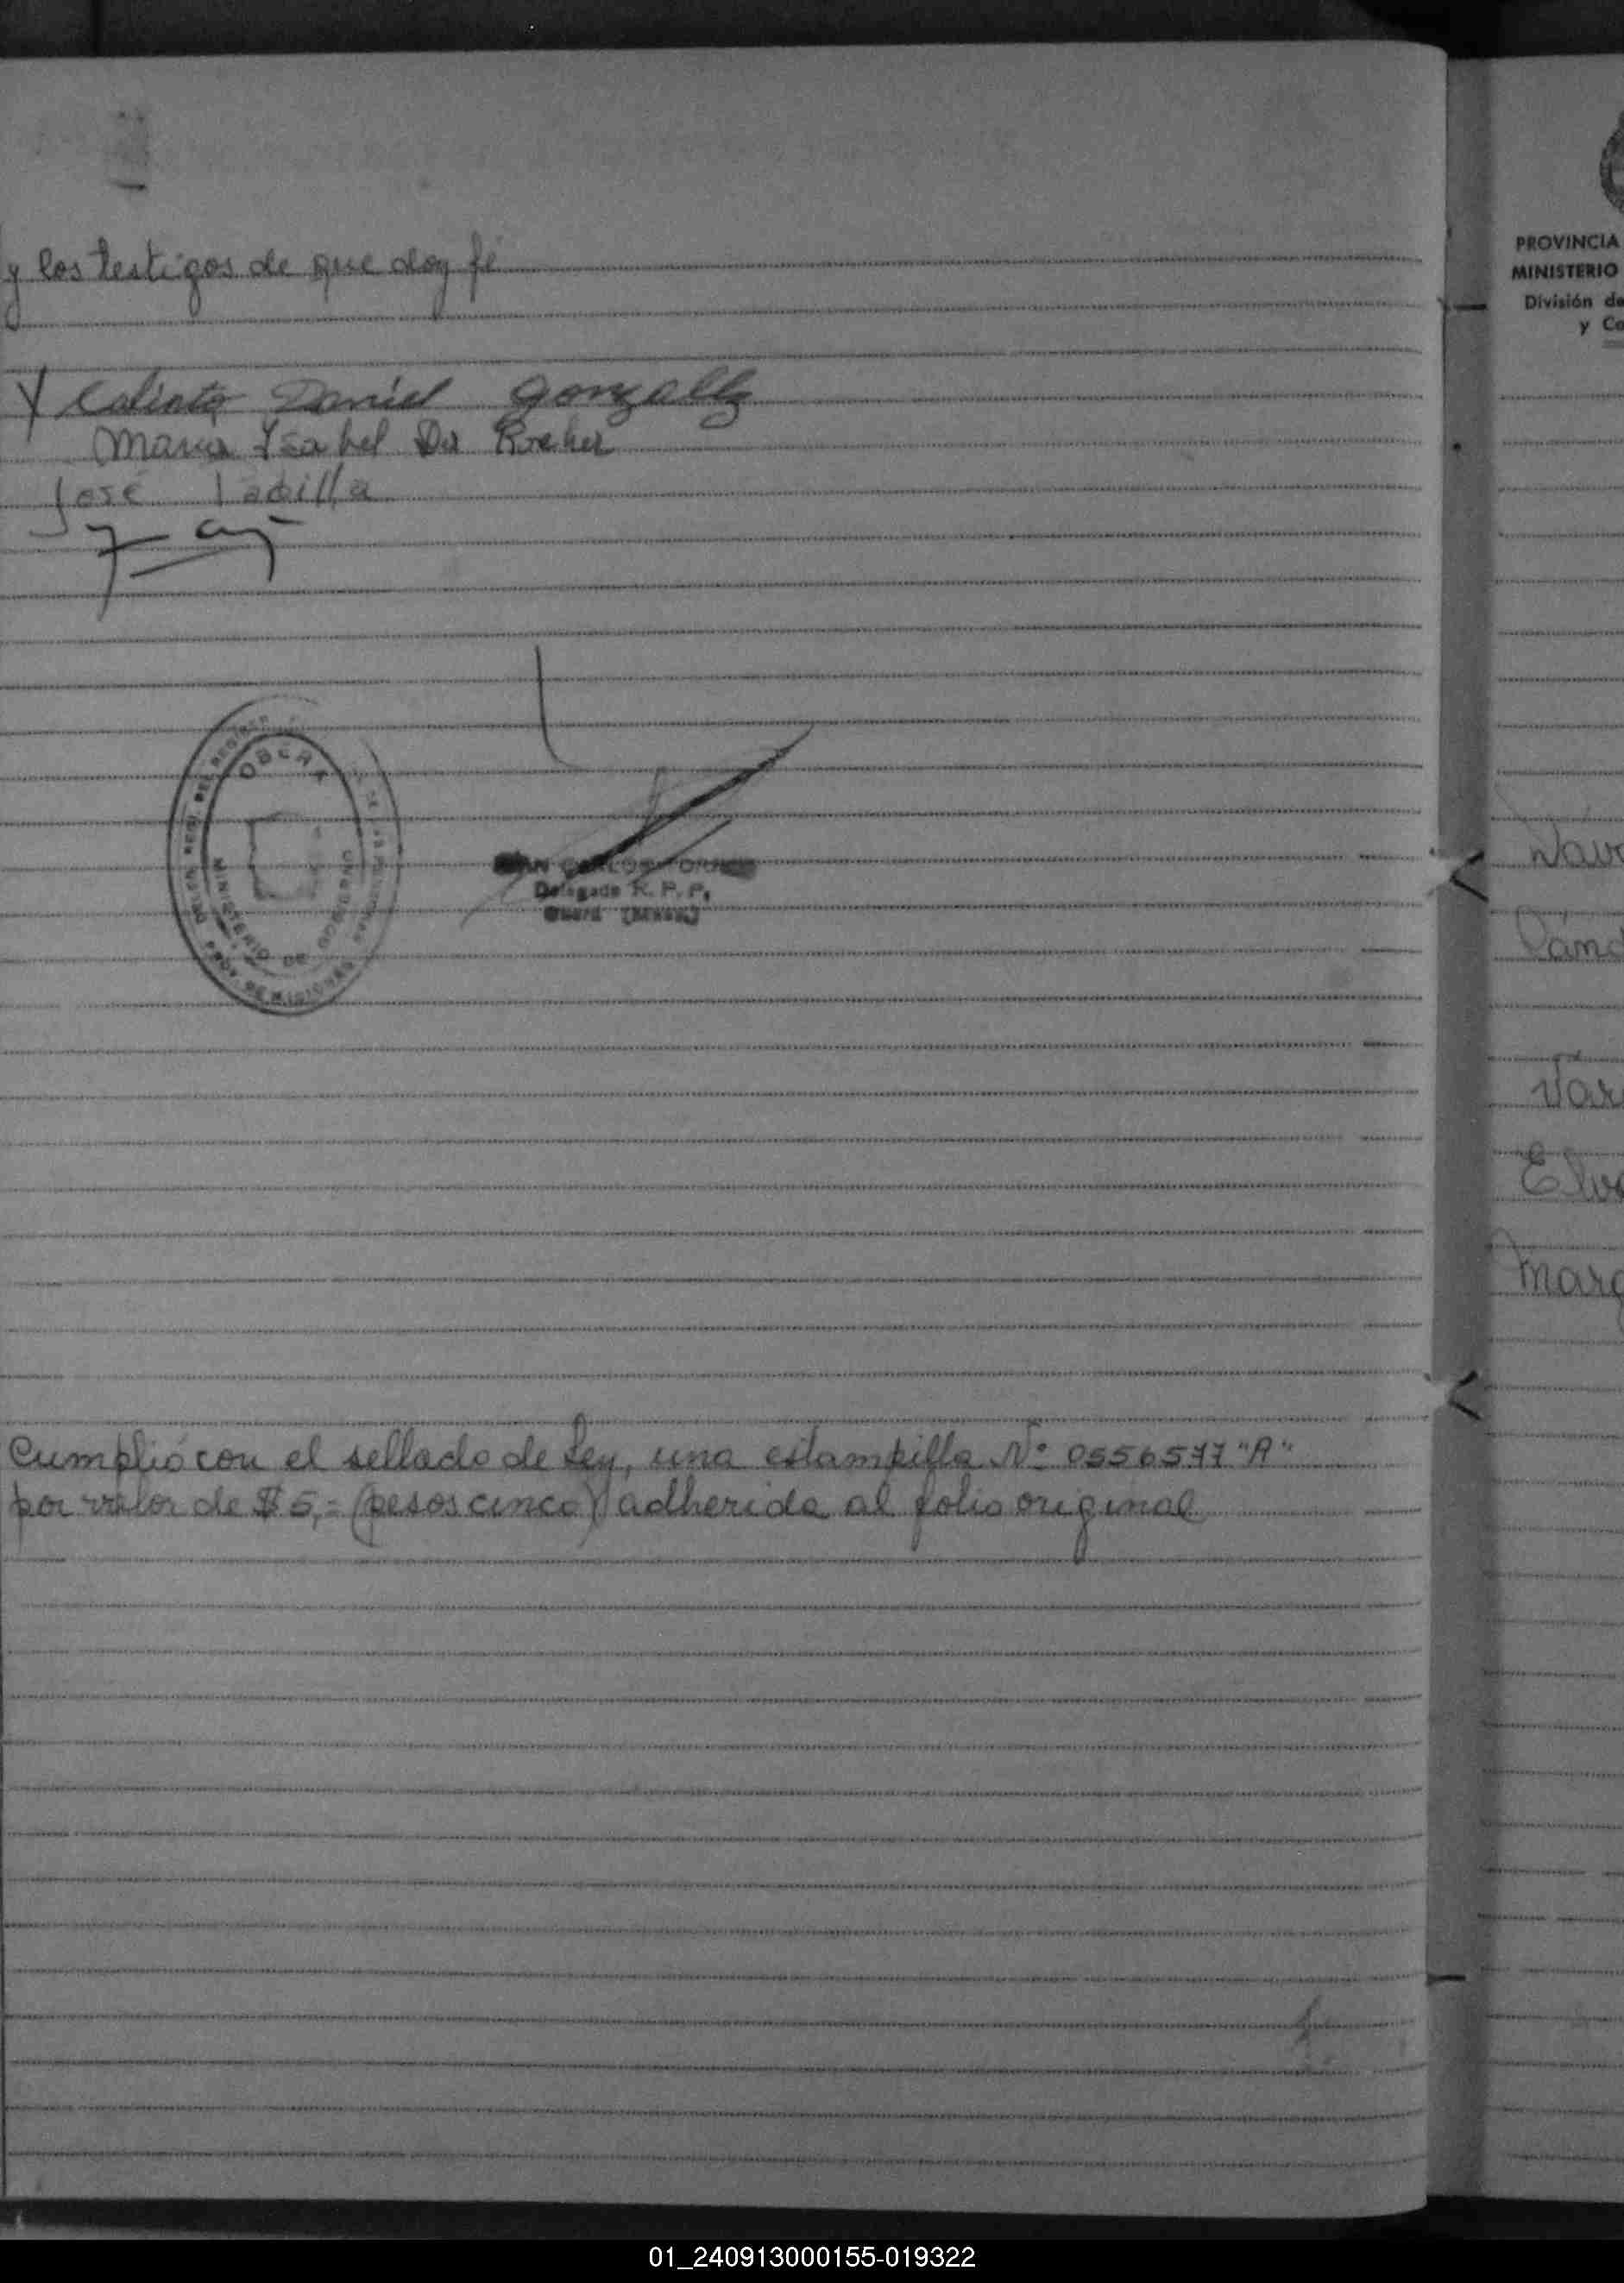 y los testigos de que doy fé
Calinto Daniel Gonzallz
Maria Ysabel Da Rocher
José Padilla
OBERA
MINISTERIO DE GOBIERNO
PROV. DE MISIONES
Delegado R. P. P.
Oberá (Mnes.)
Cumplió con el sellado de Ley, una estampilla Nº 0556577 "A"
por valor de $ 5,= (pesos cinco) adherida al folio original
PROVINCIA
MINISTERIO
División de
y Co
Pánd
Elva
Marg
01_240913000155-019322